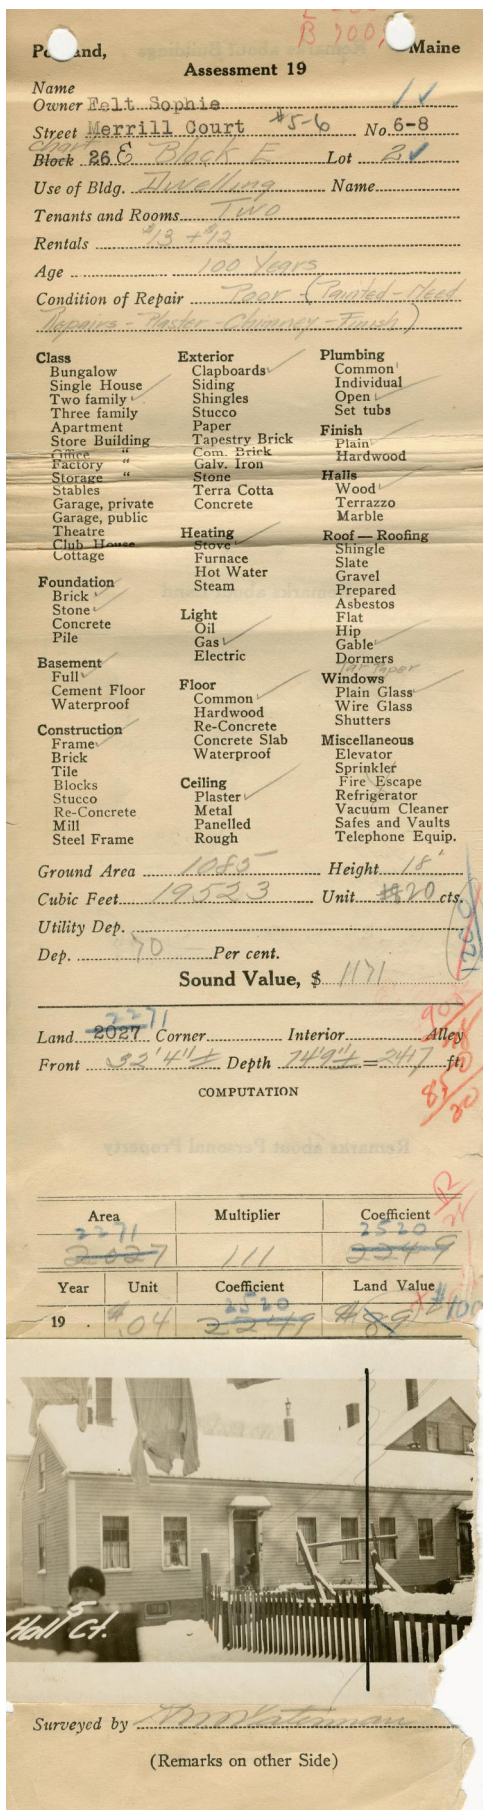 B 700
Portland, Maine
Assessment 19
Name
Owner Felt Sophie
Street Merrill Court #5-6 No. 6-8
chart
Block 26 E Block E Lot 2
Use of Bldg. Dwelling Name
Tenants and Rooms Two
Rentals $13 + $12
Age 100 Years
Condition of Repair Poor (Painted - Need
Repairs - Plaster - Chimney - Finish)
Class
Bungalow
Single House
Two family
Three family
Apartment
Store Building
Office "
Factory "
Storage "
Stables
Garage, private
Garage, public
Theatre
Club House
Cottage
Foundation
Brick
Stone
Concrete
Pile
Basement
Full
Cement Floor
Waterproof
Construction
Frame
Brick
Tile
Blocks
Stucco
Re-Concrete
Mill
Steel Frame
Exterior
Clapboards
Siding
Shingles
Stucco
Paper
Tapestry Brick
Com. Brick
Galv. Iron
Stone
Terra Cotta
Concrete
Heating
Stove
Furnace
Hot Water
Steam
Light
Oil
Gas
Electric
Floor
Common
Hardwood
Re-Concrete
Concrete Slab
Waterproof
Ceiling
Plaster
Metal
Panelled
Rough
Plumbing
Common
Individual
Open
Set tubs
Finish
Plain
Hardwood
Halls
Wood
Terrazzo
Marble
Roof — Roofing
Shingle
Slate
Gravel
Prepared
Asbestos
Flat
Hip
Gable
Dormers
Tar Paper
Windows
Plain Glass
Wire Glass
Shutters
Miscellaneous
Elevator
Sprinkler
Fire Escape
Refrigerator
Vacuum Cleaner
Safes and Vaults
Telephone Equip.
Ground Area 1085 Height 18'
Cubic Feet 19523 Unit $20 cts.
Utility Dep.
Dep. 70 Per cent.
Sound Value, $ 1171
2271
Land 2027 Corner Interior Alley
Front 32'4"± Depth 74'9"± = 2417 ft.
COMPUTATION
Area Multiplier Coefficient
2271 2520
2027 111 2249
Year Unit Coefficient Land Value
2520 $100
19 . $.04 2249 $89
5
Hall Ct.
Surveyed by
(Remarks on other Side)